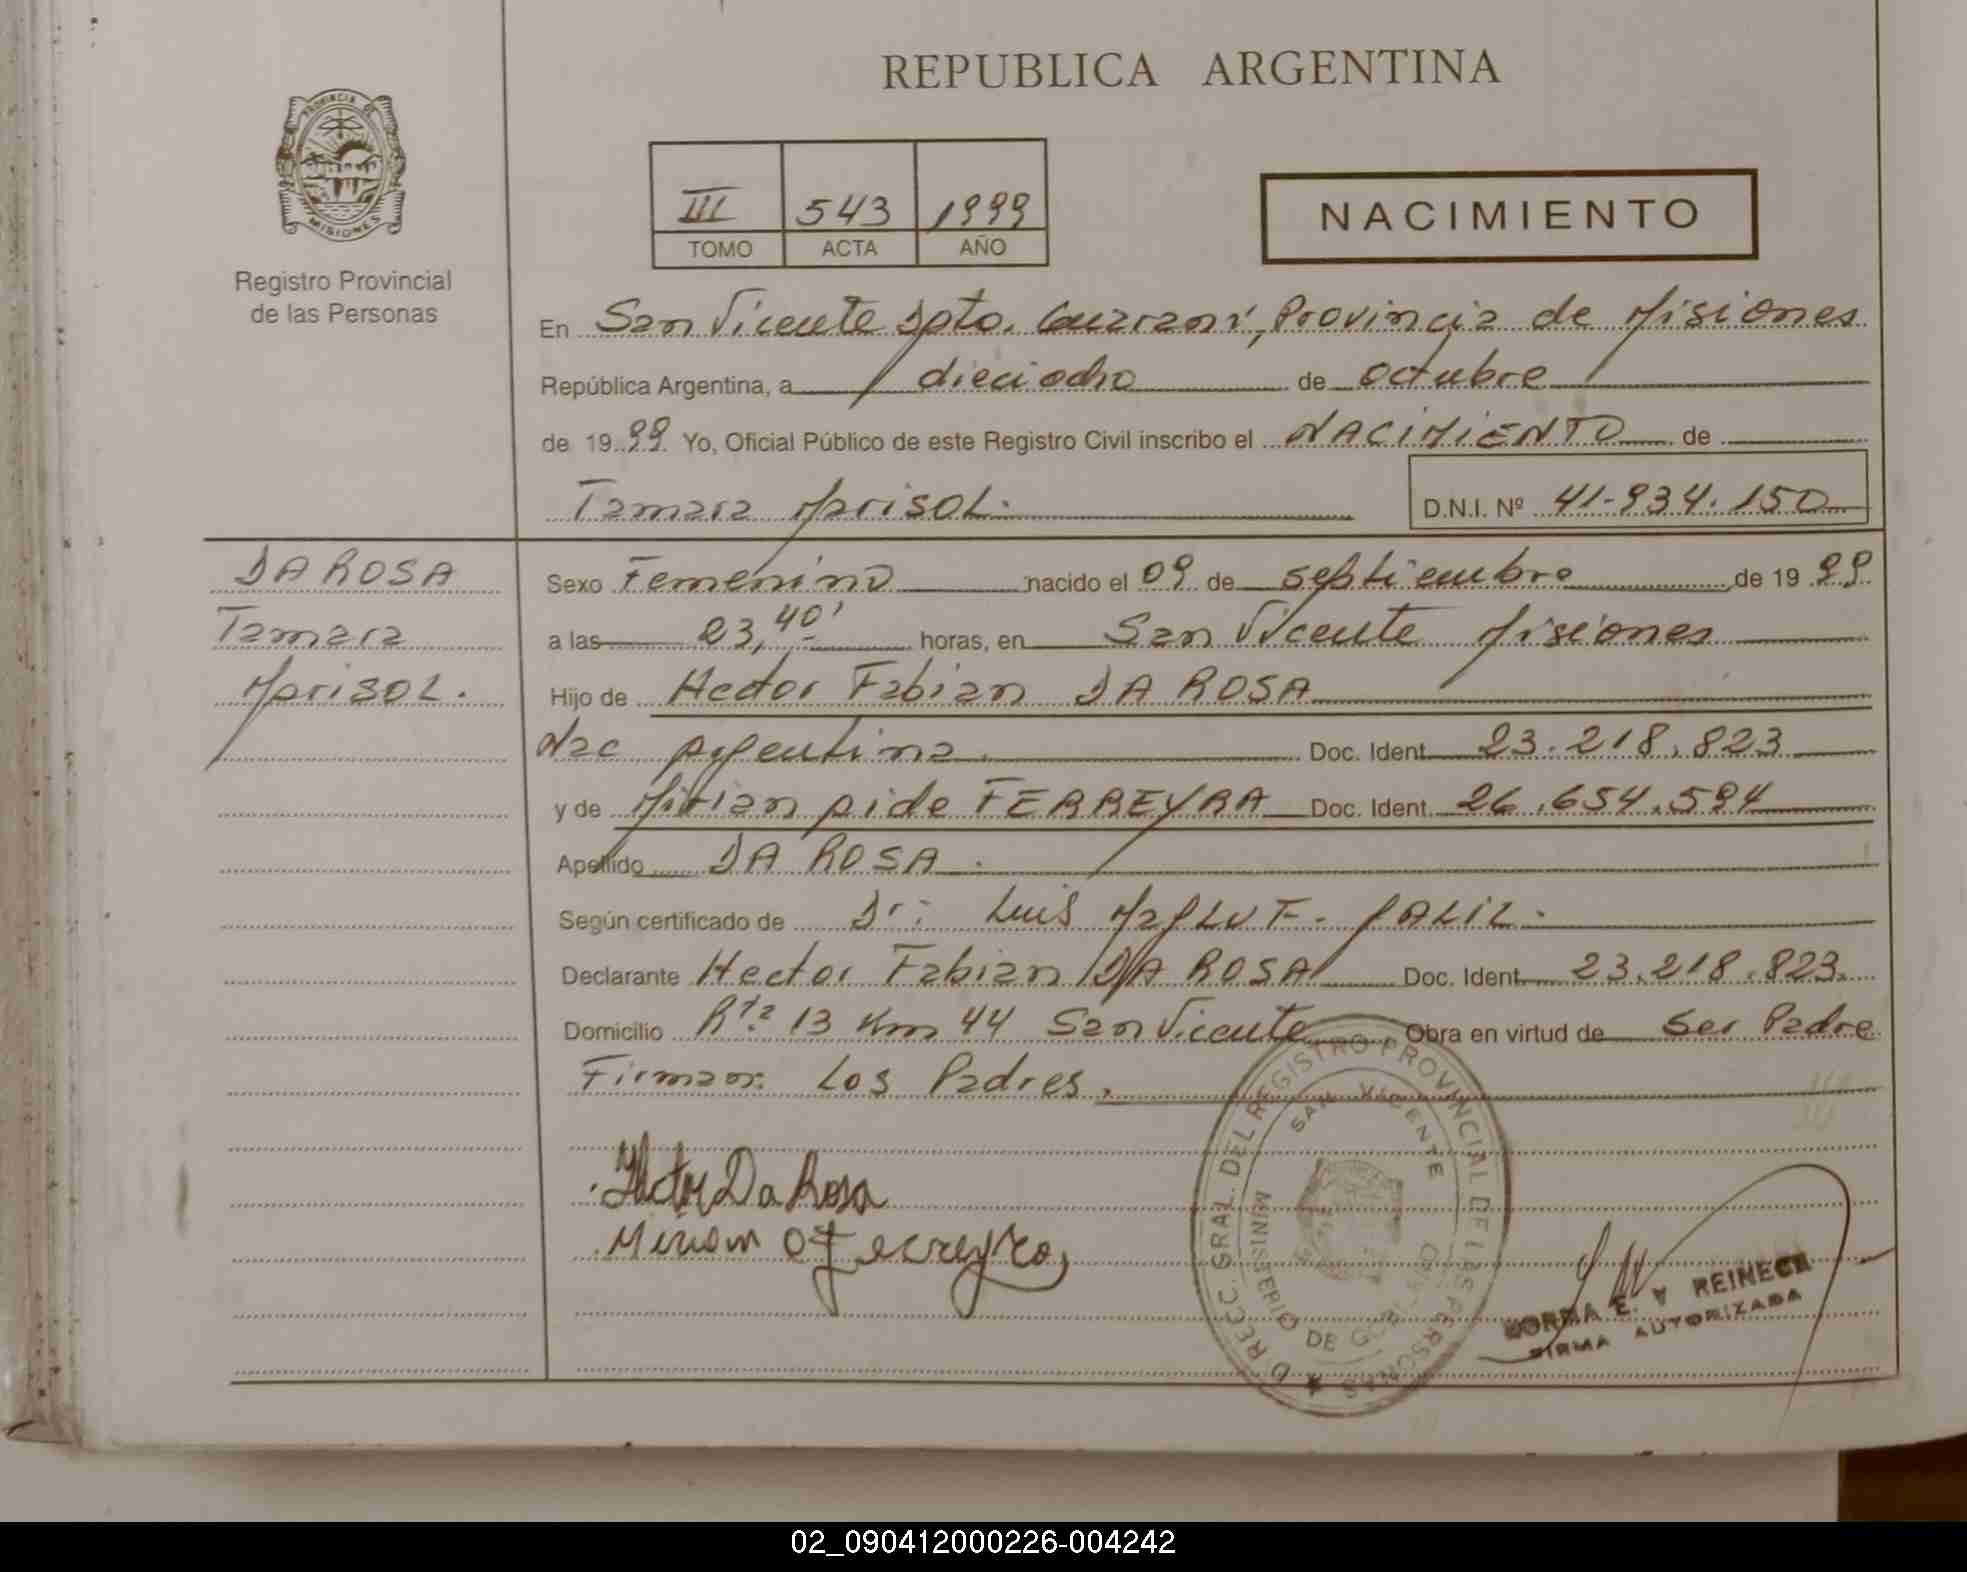 REPUBLICA ARGENTINA
PROVINCIA DE
MISIONES
Registro Provincial
de las Personas
III 543 1999
TOMO ACTA AÑO
NACIMIENTO
En San Vicente Dpto. Guarani, Provincia de Misiones
República Argentina, a dieciocho de octubre
de 1999 Yo, Oficial Público de este Registro Civil inscribo el NACIMIENTO de
Tamara Marisol.
D.N.I. Nº 41-934.150
DA ROSA
Tamara
Marisol.
Sexo Femenino nacido el 09 de septiembre de 1999
a las 23,40' horas, en San Vicente Misiones
Hijo de Hector Fabian DA ROSA
Nac Argentina. Doc. Ident. 23.218.823
y de Mirian FERREYRA Doc. Ident. 26.654.594
Apellido DA ROSA.
Según certificado de Dr: Luis JALIL.
Declarante Hector Fabian DA ROSA Doc. Ident. 23.218.823.
Domicilio Rta 13 Km 44 San Vicente Obra en virtud de Ser Padre
Firman: Los Padres.
Hector Da Rosa
Miriam Ferreyra
DIRECC. GRAL. DEL REGISTRO PROVINCIAL DE LAS PERSONAS
SAN VICENTE
MINISTERIO DE
NORMA E. V REINECK
FIRMA AUTORIZADA
02_090412000226-004242